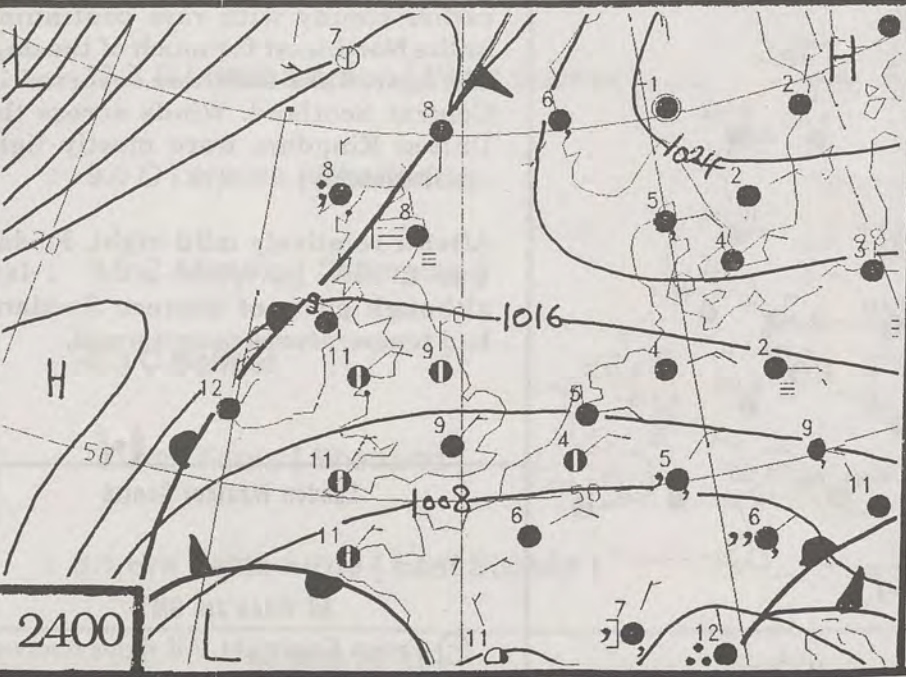 L
7
H
8
6
-1
2
1024
8
2
5
8
4
3
9
1016
H
11
9
4
2
12
5
50
9
4
9
11
5
11
1008
50
6
6
11
2400
L
11
7
12